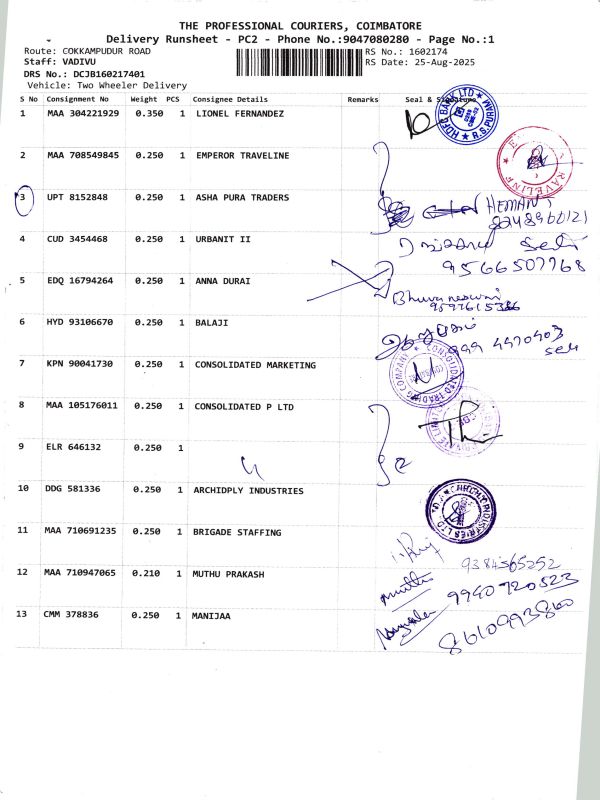 THE PROFESSIONAL COURIERS, COIMBATORE
Delivery Runsheet - PC2 - Phone No.:9047080280 - Page No.:1
Route: COKKAMPUDUR ROAD RS No.: 1602174
Staff: VADIVU RS Date: 25-Aug-2025
DRS No.: DCJB160217401
Vehicle: Two Wheeler Delivery
S No Consignment No Weight PCS Consignee Details Remarks Seal & Signature
1 MAA 304221929 0.350 1 LIONEL FERNANDEZ
HDFC BANK LTD R.S.PURAM
2 MAA 708549845 0.250 1 EMPEROR TRAVELINE
3 UPT 8152848 0.250 1 ASHA PURA TRADERS HEMANT
8248960121
4 CUD 3454468 0.250 1 URBANIT II
9566507768
5 EDQ 16794264 0.250 1 ANNA DURAI
Bhuvaneswari
6 HYD 93106670 0.250 1 BALAJI
7 KPN 90041730 0.250 1 CONSOLIDATED MARKETING
CONSOLIDATED TRADING COMPANY
8 MAA 105176011 0.250 1 CONSOLIDATED P LTD
9 ELR 646132 0.250 1
10 DDG 581336 0.250 1 ARCHIDPLY INDUSTRIES
11 MAA 710691235 0.250 1 BRIGADE STAFFING
9384565252
12 MAA 710947065 0.210 1 MUTHU PRAKASH
9940720523
13 CMM 378836 0.250 1 MANIJAA
8610993860